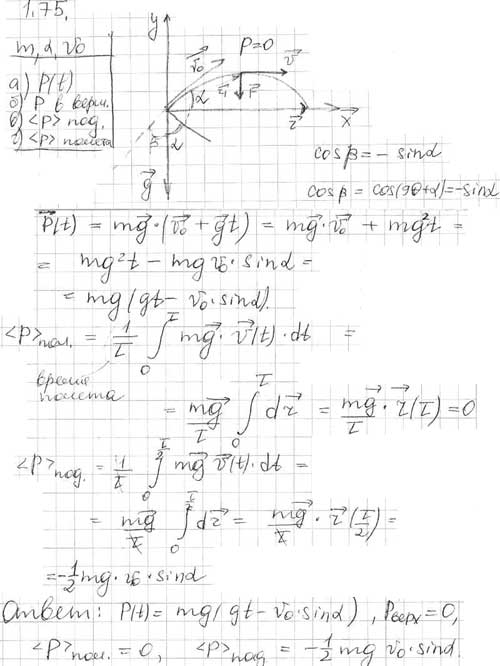 1.75.
m, α, v₀
а) P(t)
б) P в верш.
в) <P> под.
г) <P> полета
y
v⃗₀
P=0
v⃗
α
r⃗
F⃗
x
β
α
r⃗
g⃗
cosβ = - sinα
cosβ = cos(90+α) = -sinα
P⃗(t) = mg⃗·(v⃗₀ + g⃗t) = mg⃗·v⃗₀ + mg²t =
= mg²t - mgv₀·sinα =
= mg(gt - v₀·sinα).
<P>пол. = 1/τ ∫₀^τ mg⃗·v⃗(t)·dt =
время
полета
= mg⃗/τ ∫₀^τ dr⃗ = mg⃗/τ · r⃗(τ) = 0
<P>под. = 1/τ ∫₀^(τ/2) mg⃗ v⃗(t)·dt =
= mg⃗/τ ∫₀^(τ/2) dr⃗ = mg⃗/τ · r⃗(τ/2) =
= -1/2 mg·v₀·sinα
Ответ: P(t) = mg(gt - v₀·sinα), Pверх = 0,
<P>пол. = 0, <P>под = -1/2 mg v₀·sinα.